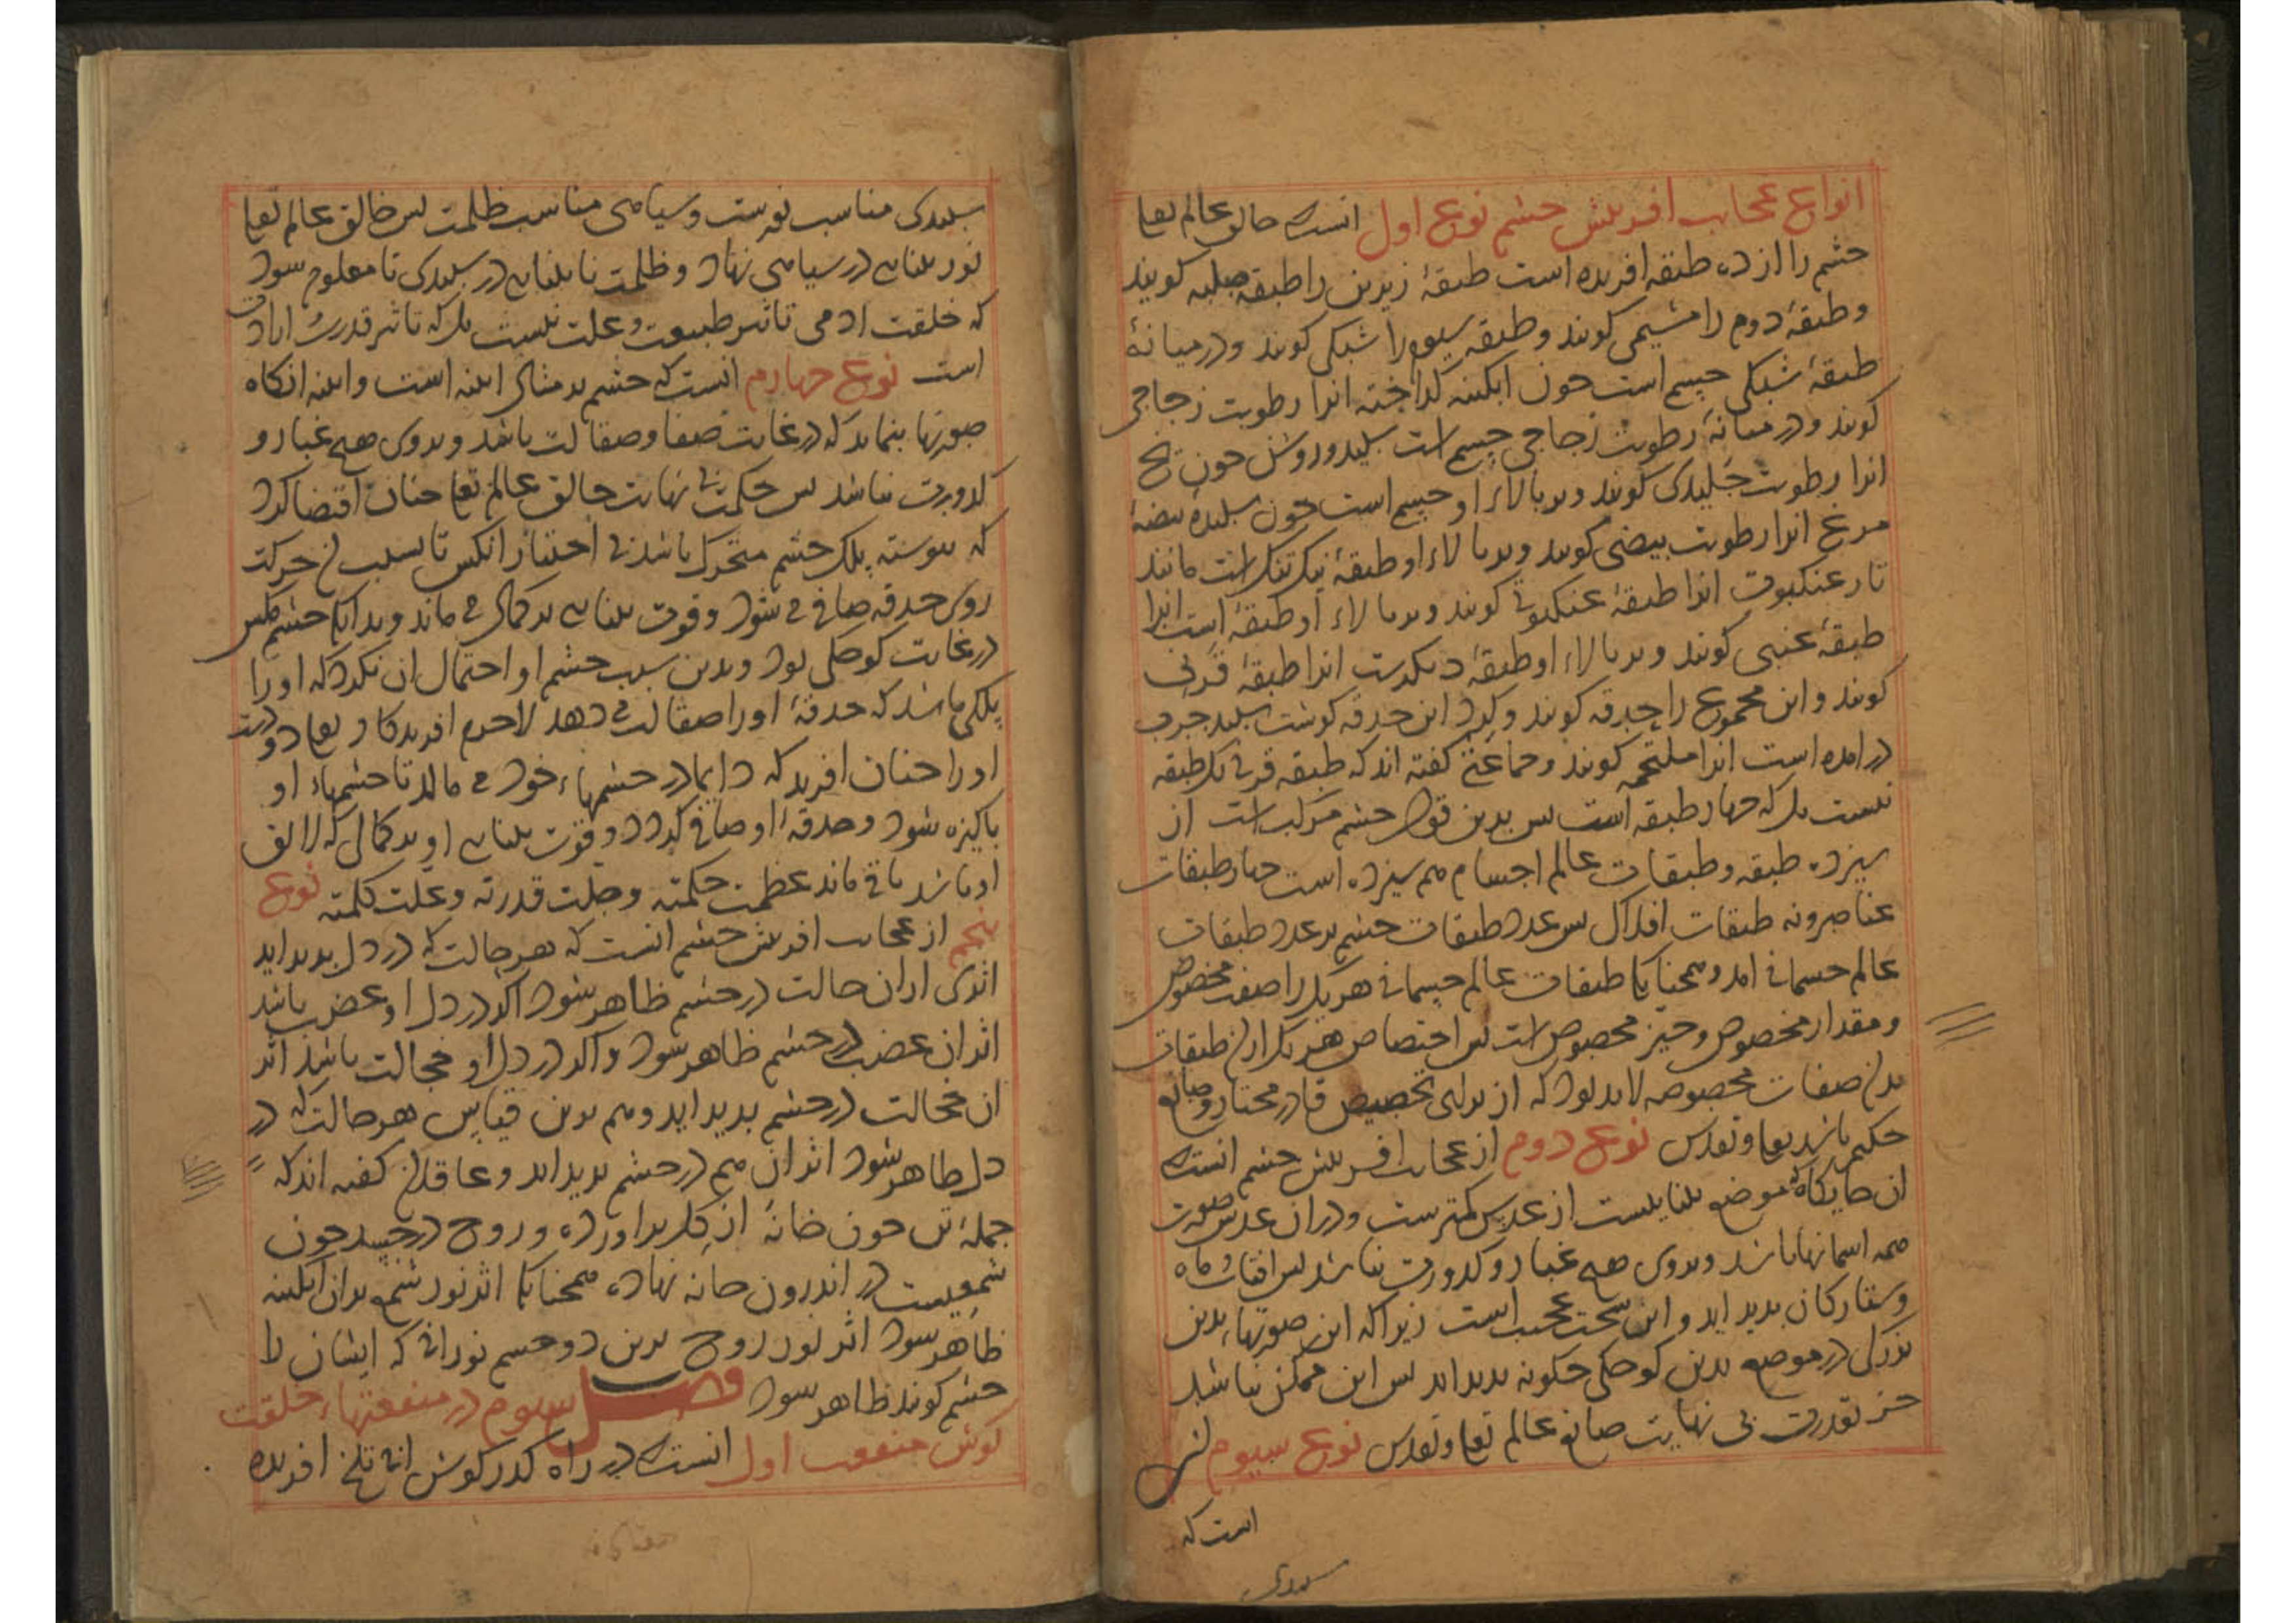 انواع عجایب افرینش چشم نوع اول انست که خالق عالم تعا
چشم را از ده طبقه افریده است طبقهٔ زیرین را طبقه صلبه کویند
و طبقهٔ دوم را مشیمی کویند و طبقه سیوم را شبکی کویند و در میانهٔ
طبقهٔ شبکی جسم است چون ابکینه کداخته انرا رطوبت زجاجی
کویند و در میانهٔ رطوبت زجاجی جسم است سپید و روشن چون یخ
انرا رطوبت جلیدی کویند و بر بالاء او جسم است چون سپیدهٔ بیضهٔ
مرغ انرا رطوبت بیضی کویند و بر بالاء او طبقهٔ تنک است مانند
تار عنکبوت انرا طبقهٔ عنکبوتی کویند و بر بالاء او طبقهٔ است انرا
طبقهٔ عنبی کویند و بر بالاء او طبقهٔ دیکرست انرا طبقهٔ قرنی
کویند و این مجموع را حدقه کویند و کرد این حدقه کوشت سپید چرب
در امده است انرا ملتحمه کویند و جماعتی کفته اند که طبقه قرنی یک طبقه
نیست بل که چهار طبقه است پس بدین قول چشم مرکب است از
سیزده طبقه و طبقات عالم اجسام هم سیزده است چهار طبقات
عناصر و نه طبقات افلاک پس عدد طبقات چشم بر عدد طبقات
عالم جسمانی امد و همچنانکا طبقات عالم جسمانی هر یک را صفت مخصوص
و مقدار مخصوص و حیز مخصوص است پس اختصاص هر یک از ان طبقات
بدان صفات مخصوصه لابد بود که از برای تخصیص قادر مختار و صانع
حکیم باشد تعا و تقدس نوع دوم از عجایب افرینش چشم انست که
ان جایکاه که موضع بینایست از عدس کمترست و در ان عدس صورت
همه اسمانها باشد و بروی هیچ غبار و کدورت نباشد پس افتاب و ماه
و ستارکان پدید اید و این سخت عجیب است زیرا که این صورتهاء بدین
بزرکی در موضع بدین کوچکی چکونه پدید اید پس این ممکن نباشد
جز بقدرت بی نهایت صانع عالم تعا و تقدس نوع سیوم
است که
سپیدی
سپیدی مناسب نورست و سیاهی مناسب ظلمت پس خالق عالم تعا
نور بینایی در سیاهی نهاد و ظلمت نابینایی در سپیدی تا معلوم شود
که خلقت ادمی تاثیر طبیعت و علت نیست بل که تاثیر قدرت
است نوع چهارم انست که چشم بر مثال اینه است و اینه انکاه
صورتها بنماید که در غایت صفا و صقالت باشد و بروی هیچ غبار و
کدورت نباشد پس حکمت بی نهایت خالق عالم تعا چنان اقتضا کرد
که پیوسته پلک چشم متحرک باشد بی اختیار انکس تا بسبب ان حرکت
روی حدقه صافی می شود و قوت بینایی بر کمال می ماند و بدانکا چشم مکس
در غایت کوچکی بود و بدین سبب چشم او احتمال ان نکرد که او را
پلکی باشد که حدقهٔ او را صقالت می دهد لاجرم افریدکار تعا دو دست
او را چنان افرید که دایما در چشمهاء خود می مالد تا چشمهاء او
پاکیزه شود و حدقهٔ او صافی کردد و قوت بینایی او بر کمالی که لایق
او باشد باقی ماند عظمت حکمته و جلت قدرته و علت کلمته نوع
پنجم از عجایب افرینش چشم انست که هر حالت که در دل پدید اید
اثری از ان حالت در چشم ظاهر شود اکر در دل او غضب باشد
اثر ان غضب در چشم ظاهر شود و اکر در دل او خجالت باشد اثر
ان خجالت در چشم پدید اید و هم برین قیاس هر حالت که در
دل ظاهر شود اثر ان هم در چشم پدید اید و عاقلان کفته اند که
جملهٔ تن چون خانهٔ از کل براورده و روح در جسد چون
شمعیست در اندرون خانه نهاده همچنانکا اثر نور شمع بران ابکینه
ظاهر شود اثر نور روح برین دو جسم نورانی که ایشان را
چشم کویند ظاهر شود فصل سیوم در منفعتهاء خلقت
کوش منفعت اول انست که در راه کذر کوش ابی تلخ افریده